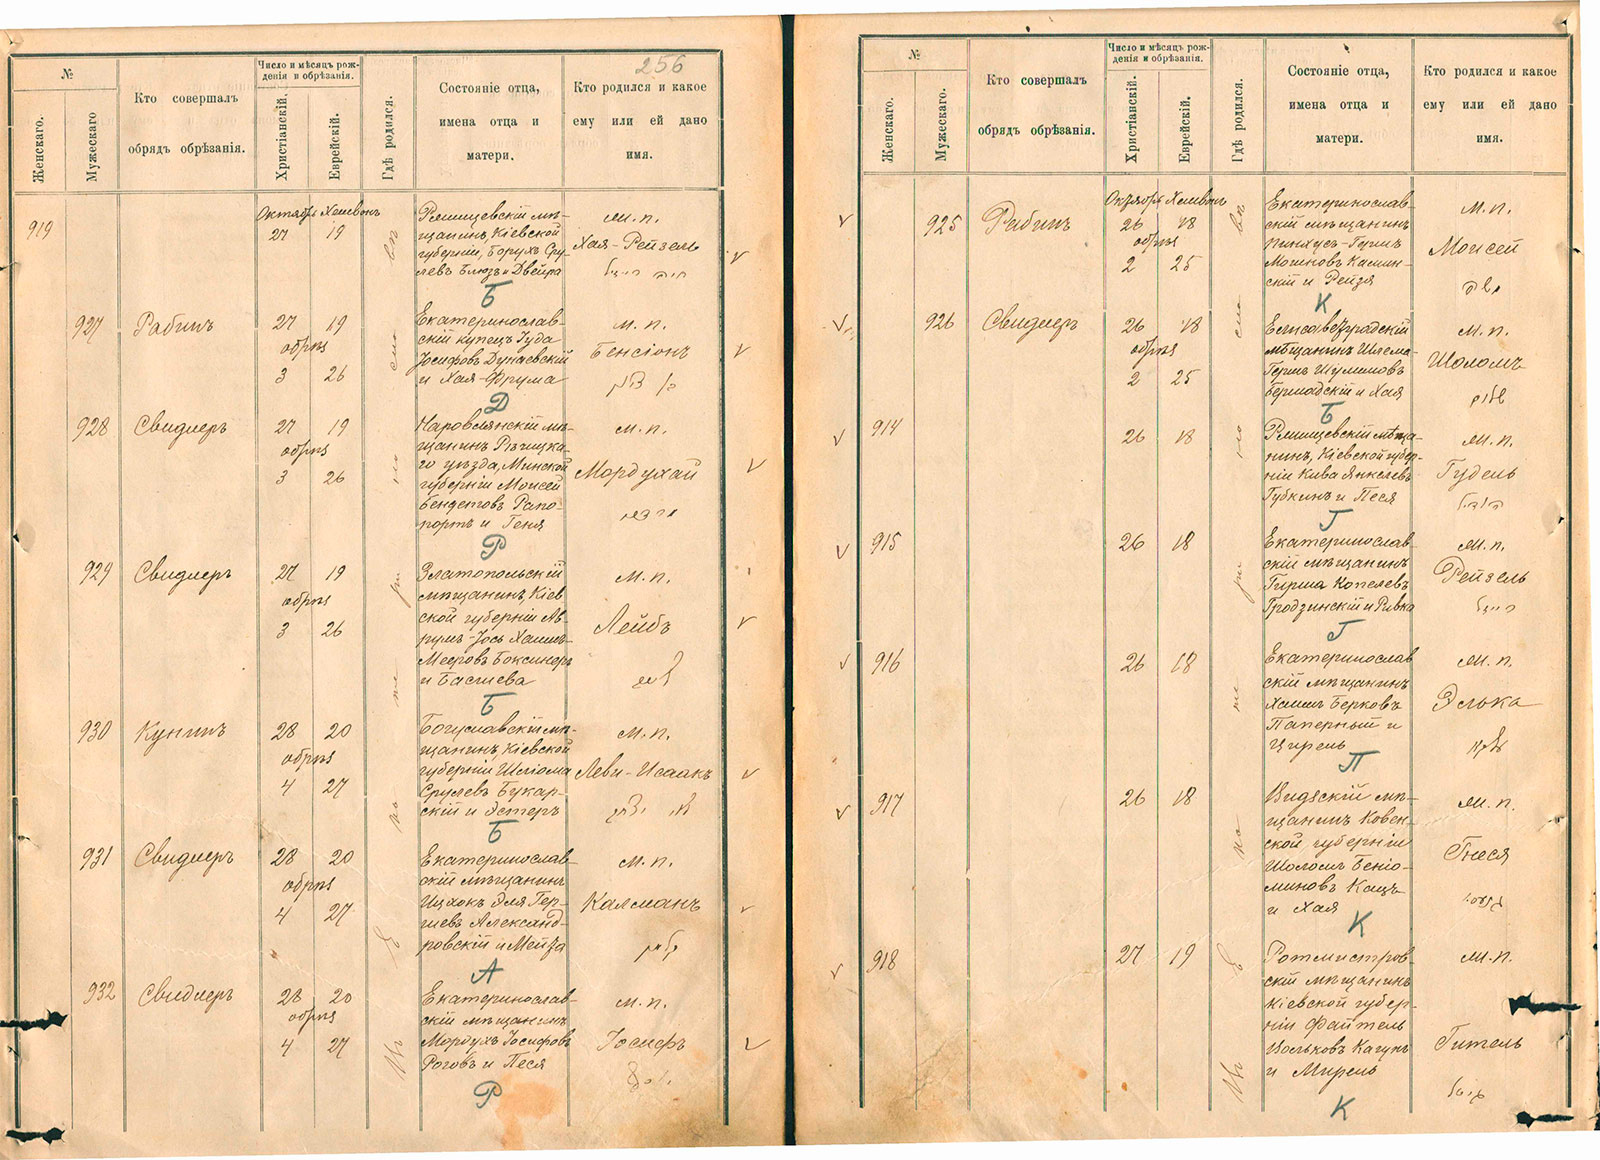 256
№
Женскаго.
Мужескаго
Кто совершалъ
обрядъ обрѣзанія.
Число и мѣсяцъ рож-
денія и обрѣзанія.
Христіанскій.
Еврейскій.
Гдѣ родился.
Состояніе отца,
имена отца и
матери.
Кто родился и какое
ему или ей дано
имя.
919
Октябрь Хешвонъ
27 19
Ржищевскій мѣ-
щанинъ, Кіевской
губерніи, Борухъ Сру-
левъ Блюзъ и Двейра
м. п.
Хая-Рейзель
חיה רייזל
Б
927 Рабинъ
27 19
обрѣз
3 26
Екатеринослав-
скій купецъ Іуда
Іосифовъ Дунаевскій
и Хая-Фрума
м. п.
Бенсіонъ
בן ציון
Д
928 Свидлеръ
27 19
обрѣз
3 26
Наровлянскій мѣ-
щанинъ Рѣчицка-
го уѣзда, Минской
губерніи Моисей
Бендетовъ Рапо-
портъ и Геня
м. п.
Мордухай
מרדכי
Р
929 Свидлеръ
27 19
обрѣз
3 26
Златопольскій
мѣщанинъ, Кіев
ской губерніи Ав-
румъ-Іось Хаимъ-
Мееровъ Боксинеръ
и Басшева
м. п.
Лейбъ
Б
930 Кунинъ
28 20
обрѣз
4 27
Богуславскій мѣ-
щанинъ, Кіевской
губерніи Шліома
Срулевъ Букар-
скій и Эстеръ
м. п.
Леви-Исаакъ
לוי יצחק
Б
931 Свидлеръ
28 20
обрѣз
4 27
Екатеринослав-
скій мѣщанинъ
Ицхокъ Эля Гер-
шевъ Александ-
ровскій и Мейта
м. п.
Калманъ
קלמן
А
932 Свидлеръ
28 20
обрѣз
4 27
Екатеринослав-
скій мѣщанинъ
Мордухъ Іосифовъ
Роговъ и Песя
м. п.
Іосифъ
יוסף
Р
№
Женскаго.
Мужескаго.
Кто совершалъ
обрядъ обрѣзанія.
Число и мѣсяцъ рож-
денія и обрѣзанія.
Христіанскій.
Еврейскій.
Гдѣ родился.
Состояніе отца,
имена отца и
матери.
Кто родился и какое
ему или ей дано
имя.
925 Рабинъ
Октябрь Хешвонъ
26 18
обрѣз
2 25
Екатеринослав-
скій мѣщанинъ
Пинхусъ-Гушъ
Мошковъ Камин-
скій и Рейзя
м. п.
Моисей
משה
К
926 Свидлеръ
26 18
обрѣз
2 25
Елисаветградскій
мѣщанинъ Шлема-
Гершъ Шулимовъ
Бершадскій и Хая
м. п.
Шоломъ
שלום
Б
914
26 18
Ржищевскій мѣща-
нинъ, Кіевской губер-
ніи Кива Янкелевъ
Губкинъ и Песя
м. п.
Гудель
הודל
Г
915
26 18
Екатеринослав-
скій мѣщанинъ
Гирша Копелевъ
Гродзинскій и Ривка
м. п.
Рейзель
רייזל
Г
916
26 18
Екатеринослав
скій мѣщанинъ
Хаимъ Берковъ
Паперный и
Цирель
м. п.
Элька
עלקא
П
917
26 18
Видзскій мѣ-
щанинъ Ковен-
ской губерніи
Шоломъ Беніо-
миновъ Кацъ
и Хая
м. п.
Гнеся
К
918
27 19
Ротмистров-
скій мѣщанинъ
Кіевской губер-
ніи Файтель
Вольковъ Кагунъ
и Мирель
м. п.
Гитель
גיטל
К